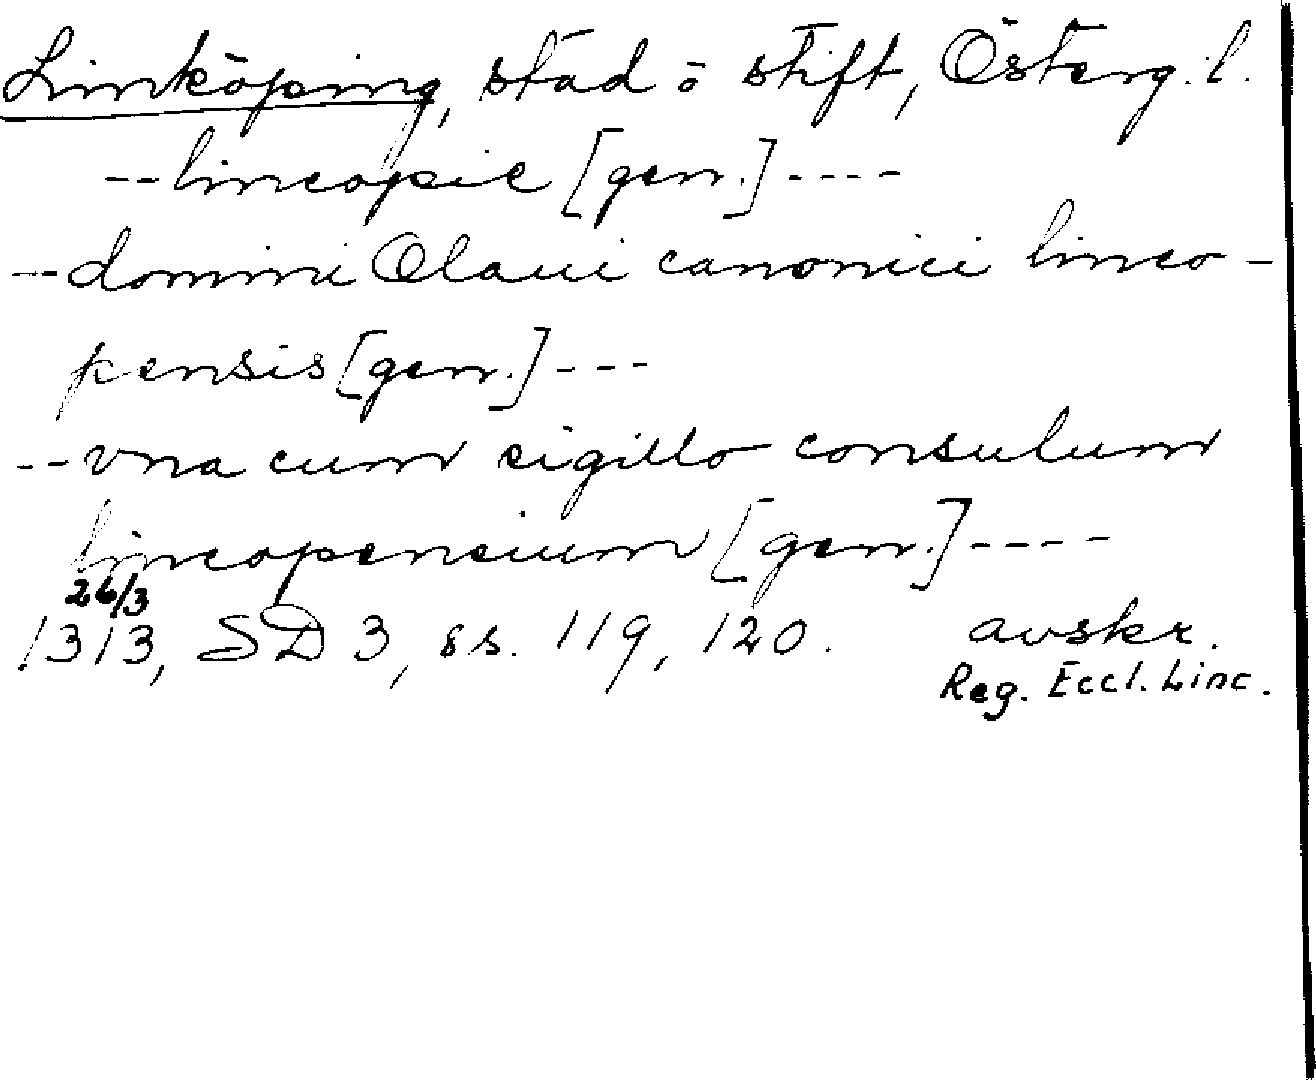 Linköping, stad o stift, Österg. l.
-- lincopie [gen.] ----
-- domini Olaui canonici linco-
pensis [gen.] ---
-- vna cum sigillo consulum
lincopensium [gen.] ----
26/3
1313, SD 3, ss. 119, 120. avskr.
Reg. Eccl. Linc.